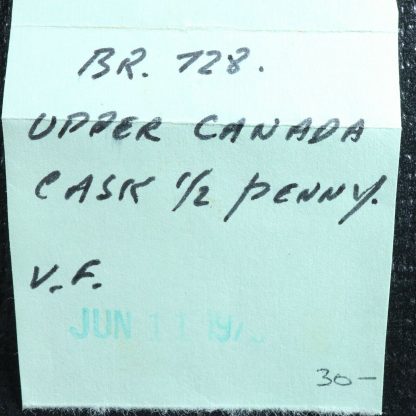 BR. 728.
UPPER CANADA
CASK 1/2 PENNY.
V.F.
JUN 11
30—